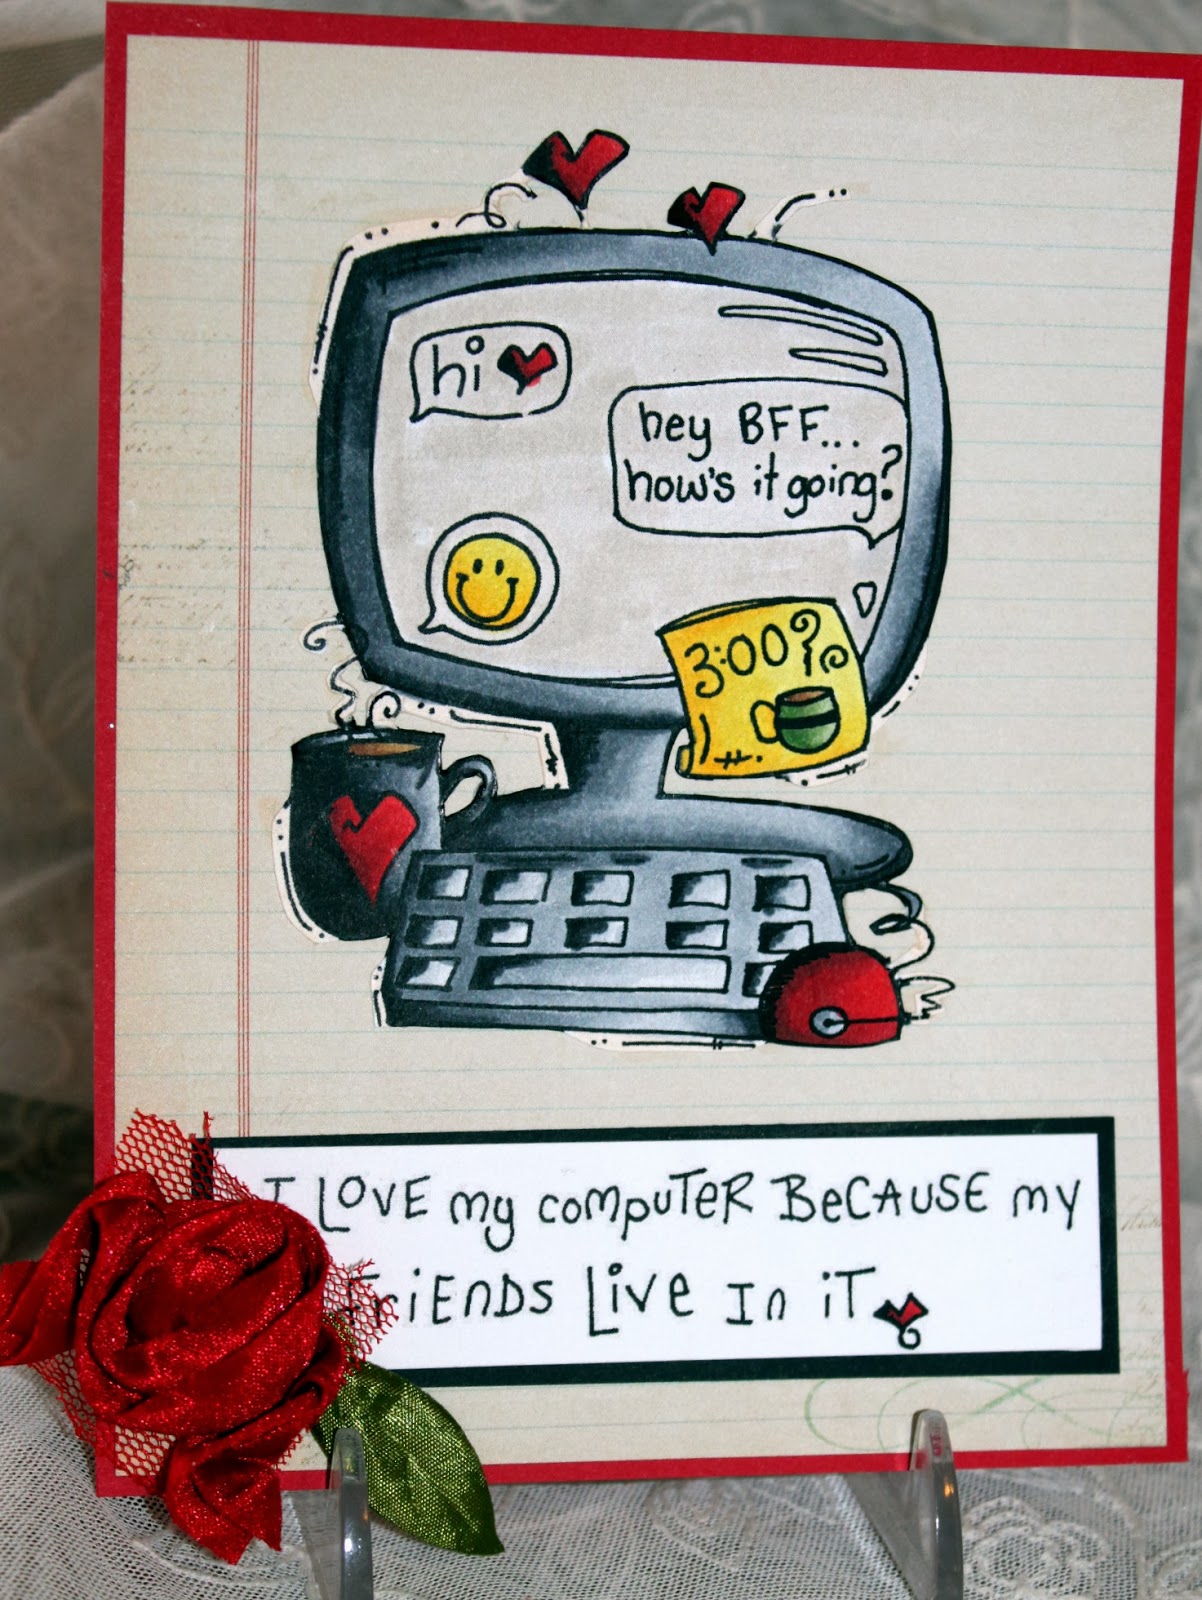 hi
hey BFF...
how's it going?
3:00?
I LOVE my computeR BeCAUSE my
FriENDS Live In iT